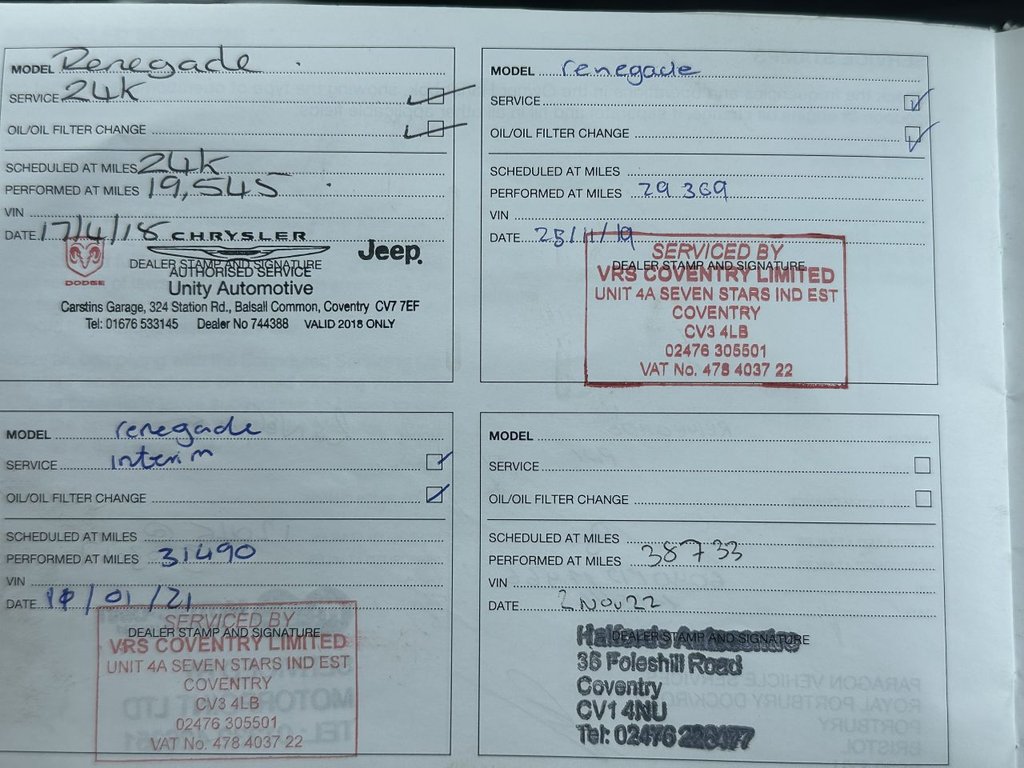 MODEL Renegade
SERVICE 24K
OIL/OIL FILTER CHANGE
SCHEDULED AT MILES 24K
PERFORMED AT MILES 19,545
VIN
DATE 17/4/18
CHRYSLER
Jeep
DODGE
DEALER STAMP AND SIGNATURE
AUTHORISED SERVICE
Unity Automotive
Carstins Garage, 324 Station Rd., Balsall Common, Coventry CV7 7EF
Tel: 01676 533145 Dealer No 744388 VALID 2018 ONLY
MODEL renegade
SERVICE
OIL/OIL FILTER CHANGE
SCHEDULED AT MILES
PERFORMED AT MILES 29369
VIN
DATE /11/19
SERVICED BY
DEALER STAMP AND SIGNATURE
VRS COVENTRY LIMITED
UNIT 4A SEVEN STARS IND EST
COVENTRY
CV3 4LB
02476 305501
VAT No. 478 4037 22
MODEL renegade
SERVICE interim
OIL/OIL FILTER CHANGE
SCHEDULED AT MILES
PERFORMED AT MILES 31490
VIN
DATE /01/21
SERVICED BY
DEALER STAMP AND SIGNATURE
VRS COVENTRY LIMITED
UNIT 4A SEVEN STARS IND EST
COVENTRY
CV3 4LB
02476 305501
VAT No. 478 4037 22
MODEL
SERVICE
OIL/OIL FILTER CHANGE
SCHEDULED AT MILES
PERFORMED AT MILES 38733
VIN
DATE 2 Nov 22
DEALER STAMP AND SIGNATURE
Halfords Autocentre
36 Foleshill Road
Coventry
CV1 4NU
Tel: 02476